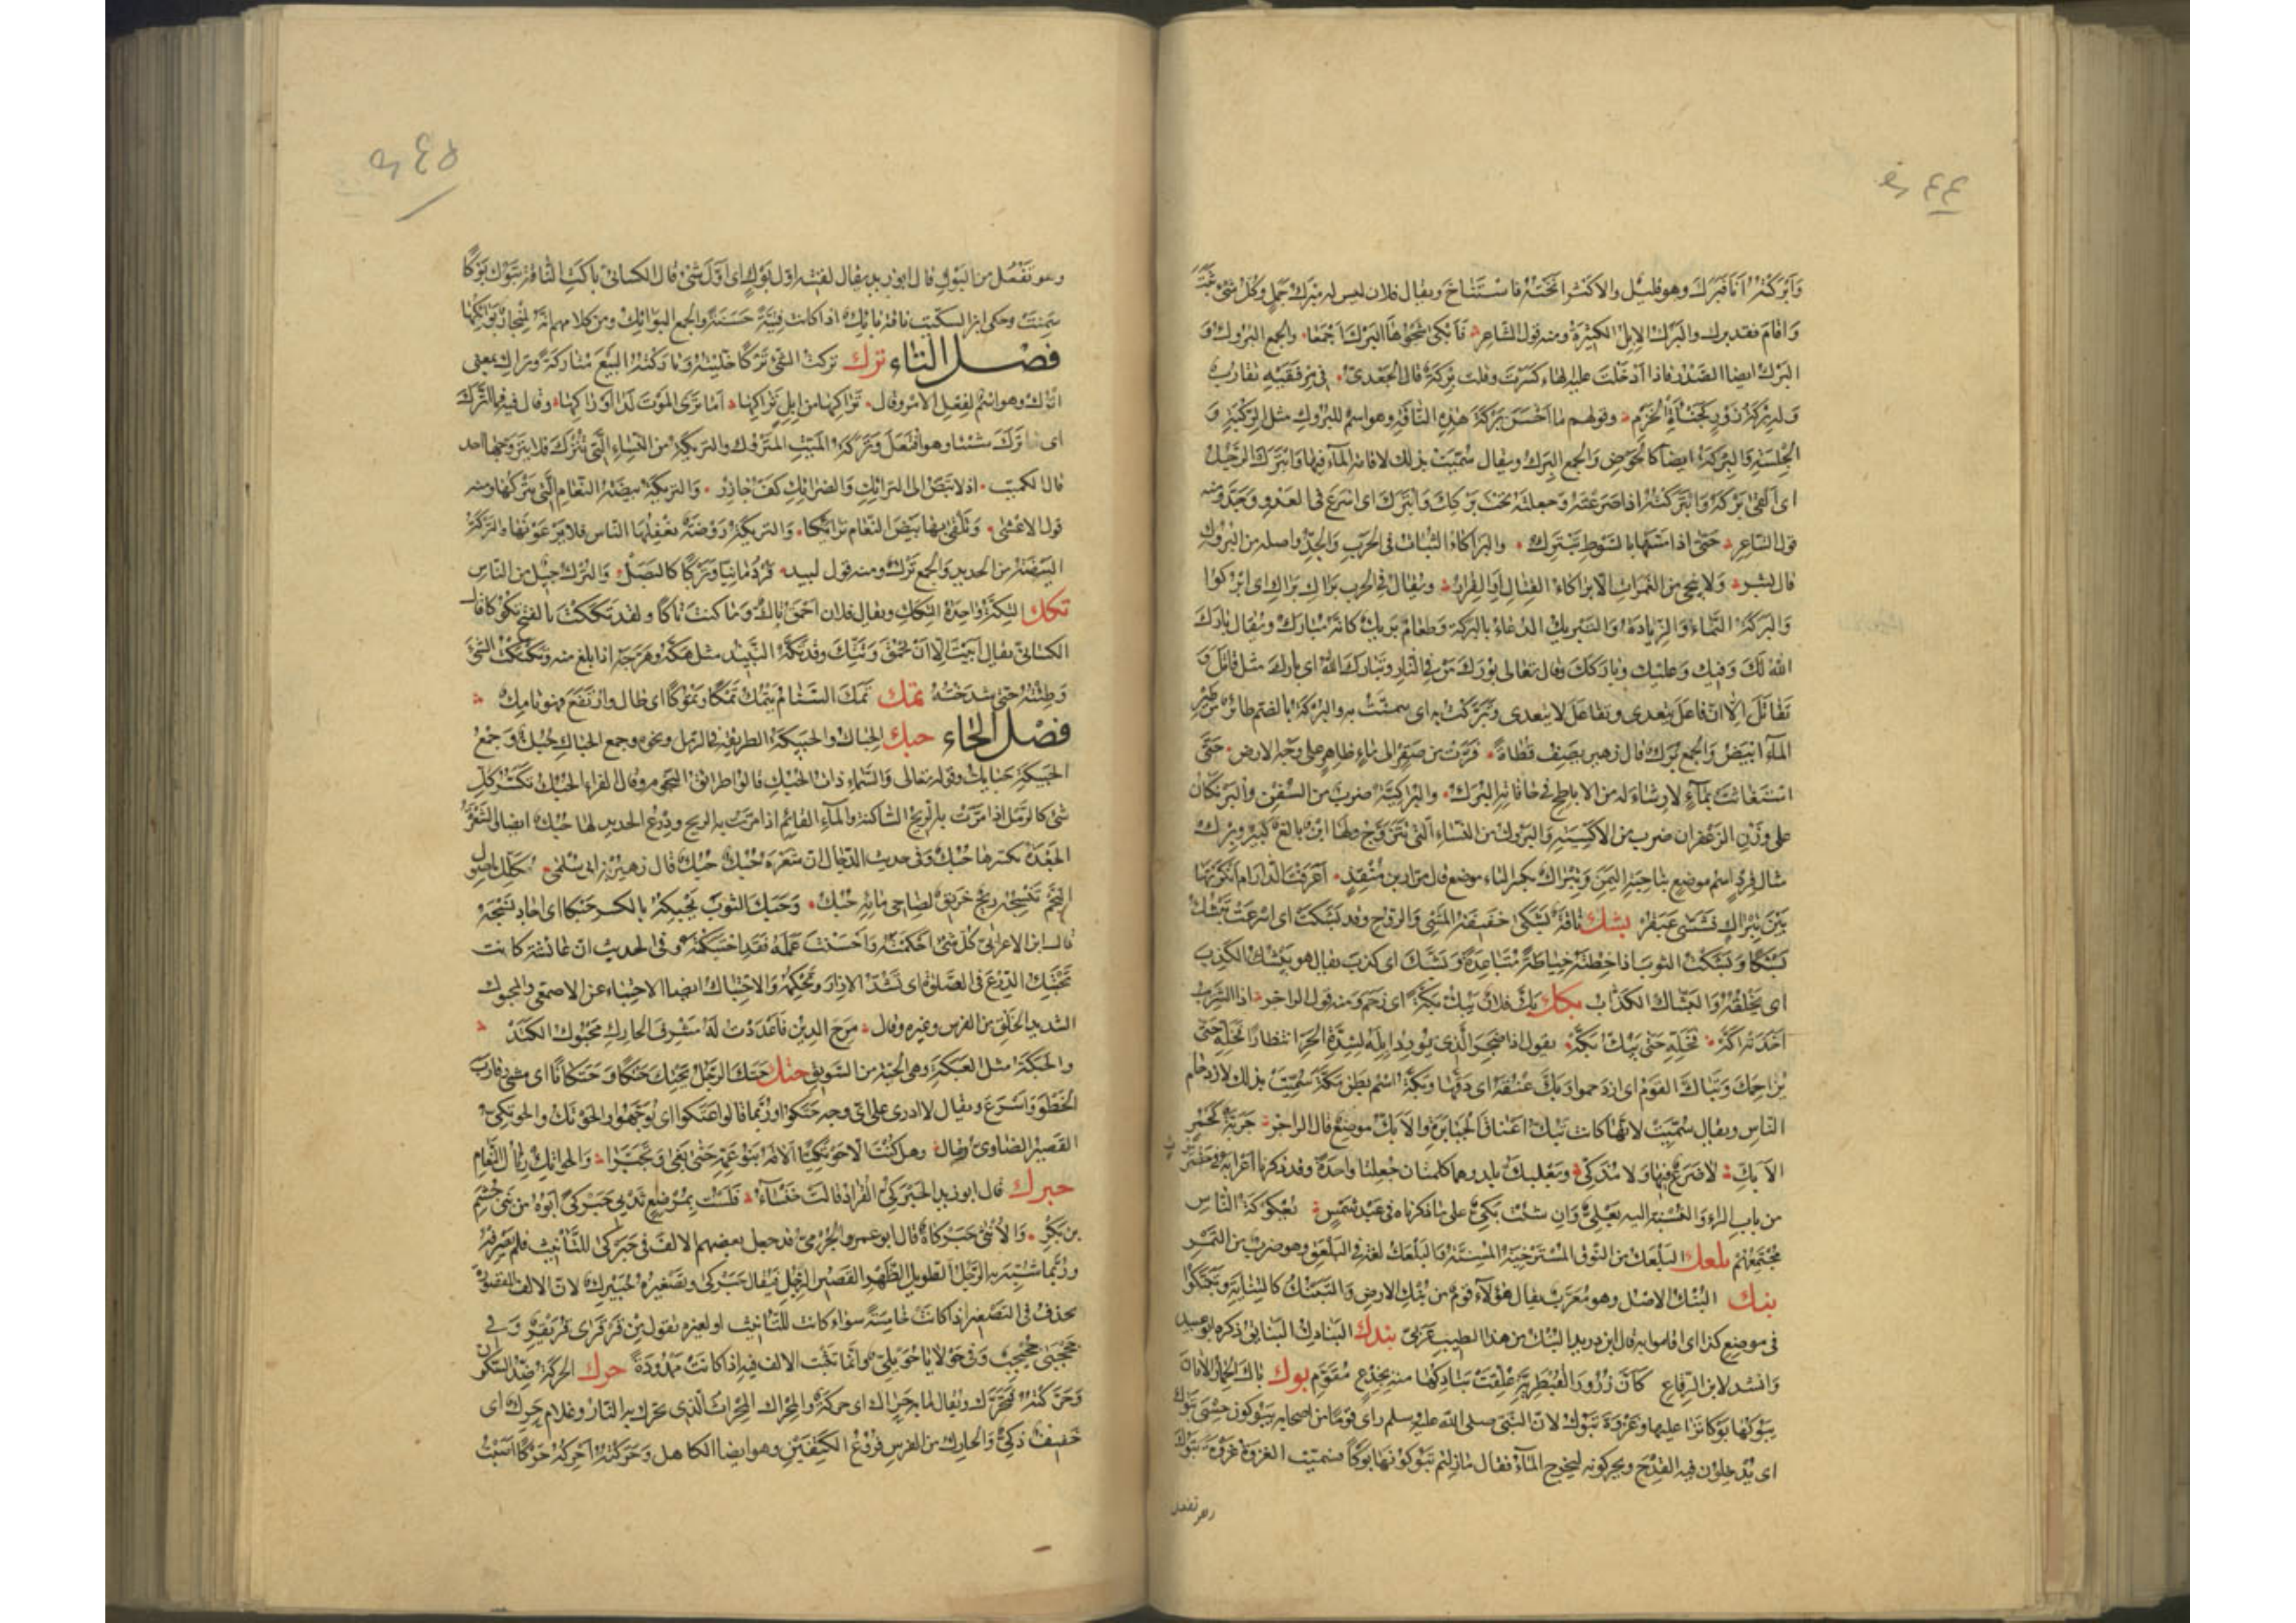 وَأَبْرَكْتُهُ أَنَا فَبَرَكَ وهو قليل والاكثر انَخْتُهُ فَاسْتَنَاخَ ويقال فلان ليس له مَبْرَكُ جَمَلٍ وكُلّ شئ ثَبَتَ
وَاقَامَ فقد برك والبَرْكُ الإبِلُ الكثيرَةُ ومنه قول الشاعِر والجمع البُروك وَ
البَرْك ايضا الصَّدْرُ فاذا ادْخَلْتَ عليه الهاء كَسَرْتَ وقلت بِرْكَة قال الجَعْدىّ فى مِرْفَقَيْهِ تقارب
وَلَه بِرْكَةُ زَوْرٍ كَجَبْأَةِ الخَزَمِ وقولهم ما أَحْسَنَ بِرْكَةَ هذِهِ النّاقَةِ وهو اسمٌ للبُروكِ مثل الرِّكْبَةِ وَ
الجِلْسَةِ وَالبِرْكَةُ ايضاً كالحَوْضِ وَالجمع البِرَك ويقال سُمّيَتْ بذلك لاقامة المآء فيها وَابْتَرَكَ الرَّجُلُ
اى اَلقى بَرْكَهُ وَابْتَرَكْتُهُ اذا صَرَعْتَهُ وَجعلتَه تحتَ بَرْكِكَ وَابْتَرَكَ اى اسْرَعَ فى العَدْوِ وَجَدَّ ومنه
قول الشاعِر حَتّى اذا مَسَّها بالسَّوْطِ تَبْتَرِكُ والبَرَاكَاءُ الثَّبات فى الحَرْبِ وَالجِدُّ واصله من البُروك
قال بشر وَلا يُنجى من الغَمَراتِ الّا بَرَاكَاءُ القِتالِ أوِ الفِرَارُ ويُقال فى الحرب بَرَاكِ بَرَاكِ اى ابْرُكُوا
وَالبَرَكَةُ النَّمَاءُ وَالزِّيادَةُ وَالتَّبْرِيكُ الدُعاءُ بالبَرَكةِ وَطعامٌ بَرِيكٌ كانّه مُبارَكٌ ويُقال بارَكَ
اللهُ لَكَ وَفيكَ وَعليكَ وبارَكَكَ وقال تعالى بُورِكَ مَنْ فى النّارِ وتبارَكَ اللهُ اى بارَكَ مثل قاتَلَ وَ
تَقاتَلَ الّا انّ فاعَلَ يتعدى وتفاعَلَ لا يتعدى وتَبَرَّكْتُ به اى تيمّنتُ به والبُرْكَةُ بالضم طائر من طير
المآء ابيَضُ وَالجمع بُرَك قال زهير يصف قَطاةً حَتّى
استغاثت بمآءٍ لا رِشاءَ لَهُ من الاباطح فى حافاتِهِ البُرَكُ والبُرَاكِيَّةُ ضربٌ من السُفُنِ والبَرَّكَانُ
على وَزْنِ الزعْفران ضرب من الأكسِيَةِ وَالبَروكُ من النساءِ الّتى تتزَوَّجُ ولها ابنٌ بالغٌ كبير وبِرْك
مثال قِرْدٍ اسم موضع بناحِيَةِ اليَمَنِ وَتِبْرَاكٌ بكسر التاء موضع قال مرّار بن مُنْقِذٍ أعَرَفْتَ الدّارَ أم أنكَرْتَها
بَيْنَ تِبْراكٍ فشَسَّىْ عَبَقُرّ بشك ناقةٌ بَشَكَى خفيفَةُ المَشْىِ وَالروحِ وقد بَشَكَتْ اى اسرعتْ تَبْشُكُ
بَشْكاً وَبَشَكْتُ الثوبَ اذا خِطْتَهُ خِياطَةً مُتَباعِدَةً وَبَشَكَ اى كذب يقال هو يَبْشُكُ الكَذِبَ
اى يَخْلِطُهُ وَالبَشّاكُ الكَذّابُ بكك بَكَّ فلانٌ يَبُكُّ بَكَّةً اى زَحَمَ ومنه قول الراجز اذا الشَّرِيبُ
أخَذَتْهُ أَكَّهْ فخَلِّهِ حَتّى يَبُكَّ بَكَّهْ يقول اذا ضَجِرَ الّذى يُورِدُ إِبِلَهُ لشِدّةِ الحَرِّ انتظارًا فخَلِّهِ حَتّى
يُزاحِمَكَ وَتَباكَّ القومُ اى ازدحموا وَبَكَّ عُنُقَهُ اى دَقَّها وَبَكَّةُ اسم بَطْنِ مَكَّةَ سُمّيَتْ بذلك لازدحام
الناس ويقال سُمّيَتْ لانّها كانت تَبُكُّ اعناقَ الجَبابِرَةِ وَالأبَكُّ موضِعٌ قال الراجز جَرَبّةٌ كحُمُرِ
الأبَكِّ لا ضَرَعٌ فيها وَلا مُذَكّى وَبَعْلَبَكُّ بلد وهما كلمتان جُعلتا واحدة وقد ذكرنا اعرابه فى حضرموت
من باب الراءِ وَالنسبة اليه بَعْلِىٌّ وَان شئت بَكِّىٌّ على ما ذكرناه فى عَبْدِ شَمْسٍ بُعْكُوكَةُ النّاس
مُجْتَمَعُهُمْ بلعك البَلْعَكُ من النوق المسْتَرْخِيَةُ المُسِنَّةُ وَالبَلْعَكُ لغة فى البَلْعَقِ وهو ضرب من التمر
بنك البُنْكُ الاصْل وهو مُعَرَّب يقال هؤلاء قومٌ من بُنْكِ الارض وَالتّبَنُّكُ كالتِّنايَةِ وتبَنَّكُوا
فى موضع كذا اى اقاموا به قال ابن دريد البُنْكُ من هذا الطيب عَرَبىّ بندك البَنادِكُ البَنائِقُ ذكره ابو عبيد
وانشد لابن الرِّقاع كَأنَّ زُرُورَ القُبْطُرِيَّةِ عُلِّقَتْ بَنادِكُها منه بِجِذْعٍ مُقَوَّمِ بوك باكَ الحِمارُ الأتانَ
يَبُوكُها بَوْكًا نَزا عليها وَغَزْوَةُ تَبُوكَ لانّ النبّى صلى الله عليه وسلم رأى قومًا من اصحابه يَبُوكونَ حِسْىَ تَبُوكَ
اى يُدْخِلُونَ فيه القِدْحَ ويحركونه ليخرج المآءُ فقال مازِلْتُم تَبُوكُونَها بَوْكًا فسُمّيَت الغزوَةُ غَزْوَةَ تَبُوكَ
وهو تفعل
وهو تَفْعُل من البَوْكِ قال ابو زيد يقال لَقِيتُهُ اوّلَ بَوْكٍ اى اوّلَ شئ قال الكسائىّ باكَتِ النّاقةُ تَبُوكُ بَوْكًا
سَمِنَتْ وحكى ابن السكيت ناقة بائِكٌ اذا كانت فَتِيَّةً حَسَنةً وَالجمع البَوائِكُ ومن كلامهم انّه لَمِنْحارٌ بَوائِكَها
فصل التاء ترك تركتُ الشئَ تَرْكًا خَلَّيْتُهُ وَتارَكْتُهُ البَيْعَ مُتارَكَةً وتَراكِ بمعنى
اتْرُكْ وهو اسْمٌ لفِعْلِ الأمْرِ وقال تَراكِها من إبِلٍ تَراكِها أما تَرَى المَوْتَ لَدَى أوْراكِها وقال فيه فما اتَّرَكَ
اى ما تَرَكَ شيئا وهو افْتَعَلَ وَتَرِكَةُ المَيّتِ المَتْرُوك والتَرِيكَةُ من النّساءِ الَّتى تُتْرَكُ فلا يتزوّجها احد
قال الكميت وَالتَرِيكَةُ بيضَةُ النَّعامِ الَّتى يَتْرُكُها ومنه
قول الاعشى وَتَلْقَى بها بَيْضَ النَّعامِ تَرائِكَا وَالتَرِيكَةُ رَوْضَةٌ يُغْفِلُها النّاس فلا يَرْعَوْنَها والتَّرْكَةُ
البَيْضَةُ من الحديدِ والجمع تَرْكٌ ومنه قول لبيد قُرْدُمانِيًا وَتَرْكًا كالبَصَلْ وَالتُّرْكُ جيلٌ من النّاسِ
تكك التِّكّةُ واحِدَةُ التِّكَكِ ويقال فلان أحْمَقُ تاكٌّ وَما كنتَ تاكًّا ولقد تَكَكْتَ بالفتح تُكُوكًا قال
الكسائىّ يقال أبَيْتَ الّا أنْ تَحْمُقَ وَتَتِكَّ وقد تَكَّهُ النَّبِيذ مثل هَكَّهُ وهَرَّجَهُ اذا بلغ منه وتَكْتَكْتُ الشئَ
وَطِئْتُهُ حتى شدَخْتُهُ تمك تَمَكَ السَّنامُ يَتْمُكُ تَمْكًا وتُمُوكًا اى طال وارْتَفَعَ فهو تامِكٌ
فصل الحاء حبك الحِباكُ والحَبِيكَةُ الطريقة فى الرّمل ونحوه وجمع الحِباكِ حُبُكٌ وَجَمْعُ
الحَبيكَةِ حَبائِكُ وقوله تعالى وَالسَّماءِ ذاتِ الحُبُكِ قالوا طرائق النّجوم وقال الفراء الحُبُكُ تَكَسُّرُ كلّ
شئ كالرّمْلِ اذا مَرّتْ به الرّيحُ السّاكِنَةُ والمآءِ القائِم اذا مرّت به الريح ودِرْعُ الحديد لها حُبُكٌ ايضا والشَّعْرَةُ
الجَعْدَةُ تكسّرها حُبُكٌ وفى حديث الدّجّال انّ شَعْرَهُ حُبُكٌ حُبُكٌ قال زهير بن ابى سُلمى مُكَلَّلٌ بأصولِ
النَّجْمِ تَنْسِجُهُ ريحٌ خَرِيقٌ لِضاحِى مائِهِ حُبُكُ وَحَبَكَ الثوبَ يَحْبِكُهُ بالكسر حَبْكًا اى اجاد نَسْجَهُ
قال ابن الاعرابىّ كلّ شئ احْكَمْتَهُ وَاحْسَنْتَ عَمَلَهُ فقد احْتَبَكْتَهُ وفى الحديث انّ عائشة كانت
تَحْتَبِكُ تحتَ الدِّرْعِ فى الصَّلوة اى تَشُدُّ الازارَ وتُحْكِمُهُ وَالاحْتِباكُ ايضا الاحتِباءُ عن الاصمعى والمحبوك
الشديد الخَلْقِ من الفرس وغيره وقال مَرِجَ الدِّينُ فأعْدَدْتُ لَهُ مُشْرِفَ الحارِكِ مَحْبُوكَ الكَتَدْ
والحَبَكَةُ مثل العَبَكَةِ وهى الحبّة من السَّوِيقِ حتك حَتَكَ الرَّجُلُ يَحْتِكُ حَتْكًا وَحَتَكانًا اى مشى وقارَبَ
الخَطْوَ وَاسْرَعَ ويقال لا ادرى على اىّ وجهٍ حَتَكوا ورُبَّما قالوا عَتَكوا اى تَوَجَّهُوا والحَوْتَكُ والحَوْتَكِىُّ
القَصيرُ الضّاوِىّ وقال والحَواتِكُ رِئالُ النّعامِ
حبرك قال ابو زيد الحَبَرْكَى القُراد قالت خَنْساءُ فَلَسْتُ بِمُرْضِعٍ ثَدْيِى حَبَرْكَى أبُوهُ من بَنى جُشَمِ
بن بَكْرِ وَالأُنثى حَبَرْكاةٌ قال ابو عمرو الجَرْمىّ قد جعل بعضهم الالفَ فى حَبَرْكَى للتّأنيث فلم يَصْرِفْهُ
ورُبَّما شُبِّهَ به الرَّجُلُ الطويلُ الظَّهْرِ القَصيرُ الرِّجْلِ فيُقال حَبَرْكَى وتصغيرُهُ حُبَيْرِكٌ لانّ الالف المقصورةَ
تحذف فى التصغير اذا كانت خامِسَةً سواء كانت للتّأنيث او لغيره تقول فى قَرْقَرَى قُرَيْقِرٌ وَفى
جَحْجَبَى جُحَيْجِبٌ وَفى حَوْلايا حُوَيْلِىٌّ وانّما تثبت الالف فيه اذا كانَتْ مَمْدُودَةً حرك الحَرَكَةُ ضِدُّ السّكون
وَحَرَّكْتُهُ فَتَحَرَّكَ ويُقال ما به حَراكٌ اى حركةٌ وَالمِحْراكُ المِحْراثُ الّذى تحرّك به النّار وغلامٌ حَرِكٌ اى
خفيفٌ ذَكِىٌّ وَالحارِكُ من الفرس فُروعُ الكَتِفَيْنِ وهو ايضا الكاهل وَحَرَكْتُهُ أحْرُكُهُ حَرْكًا أصَبْتُ